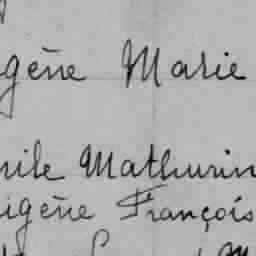 gène Marie
mile Mathurin
igène François